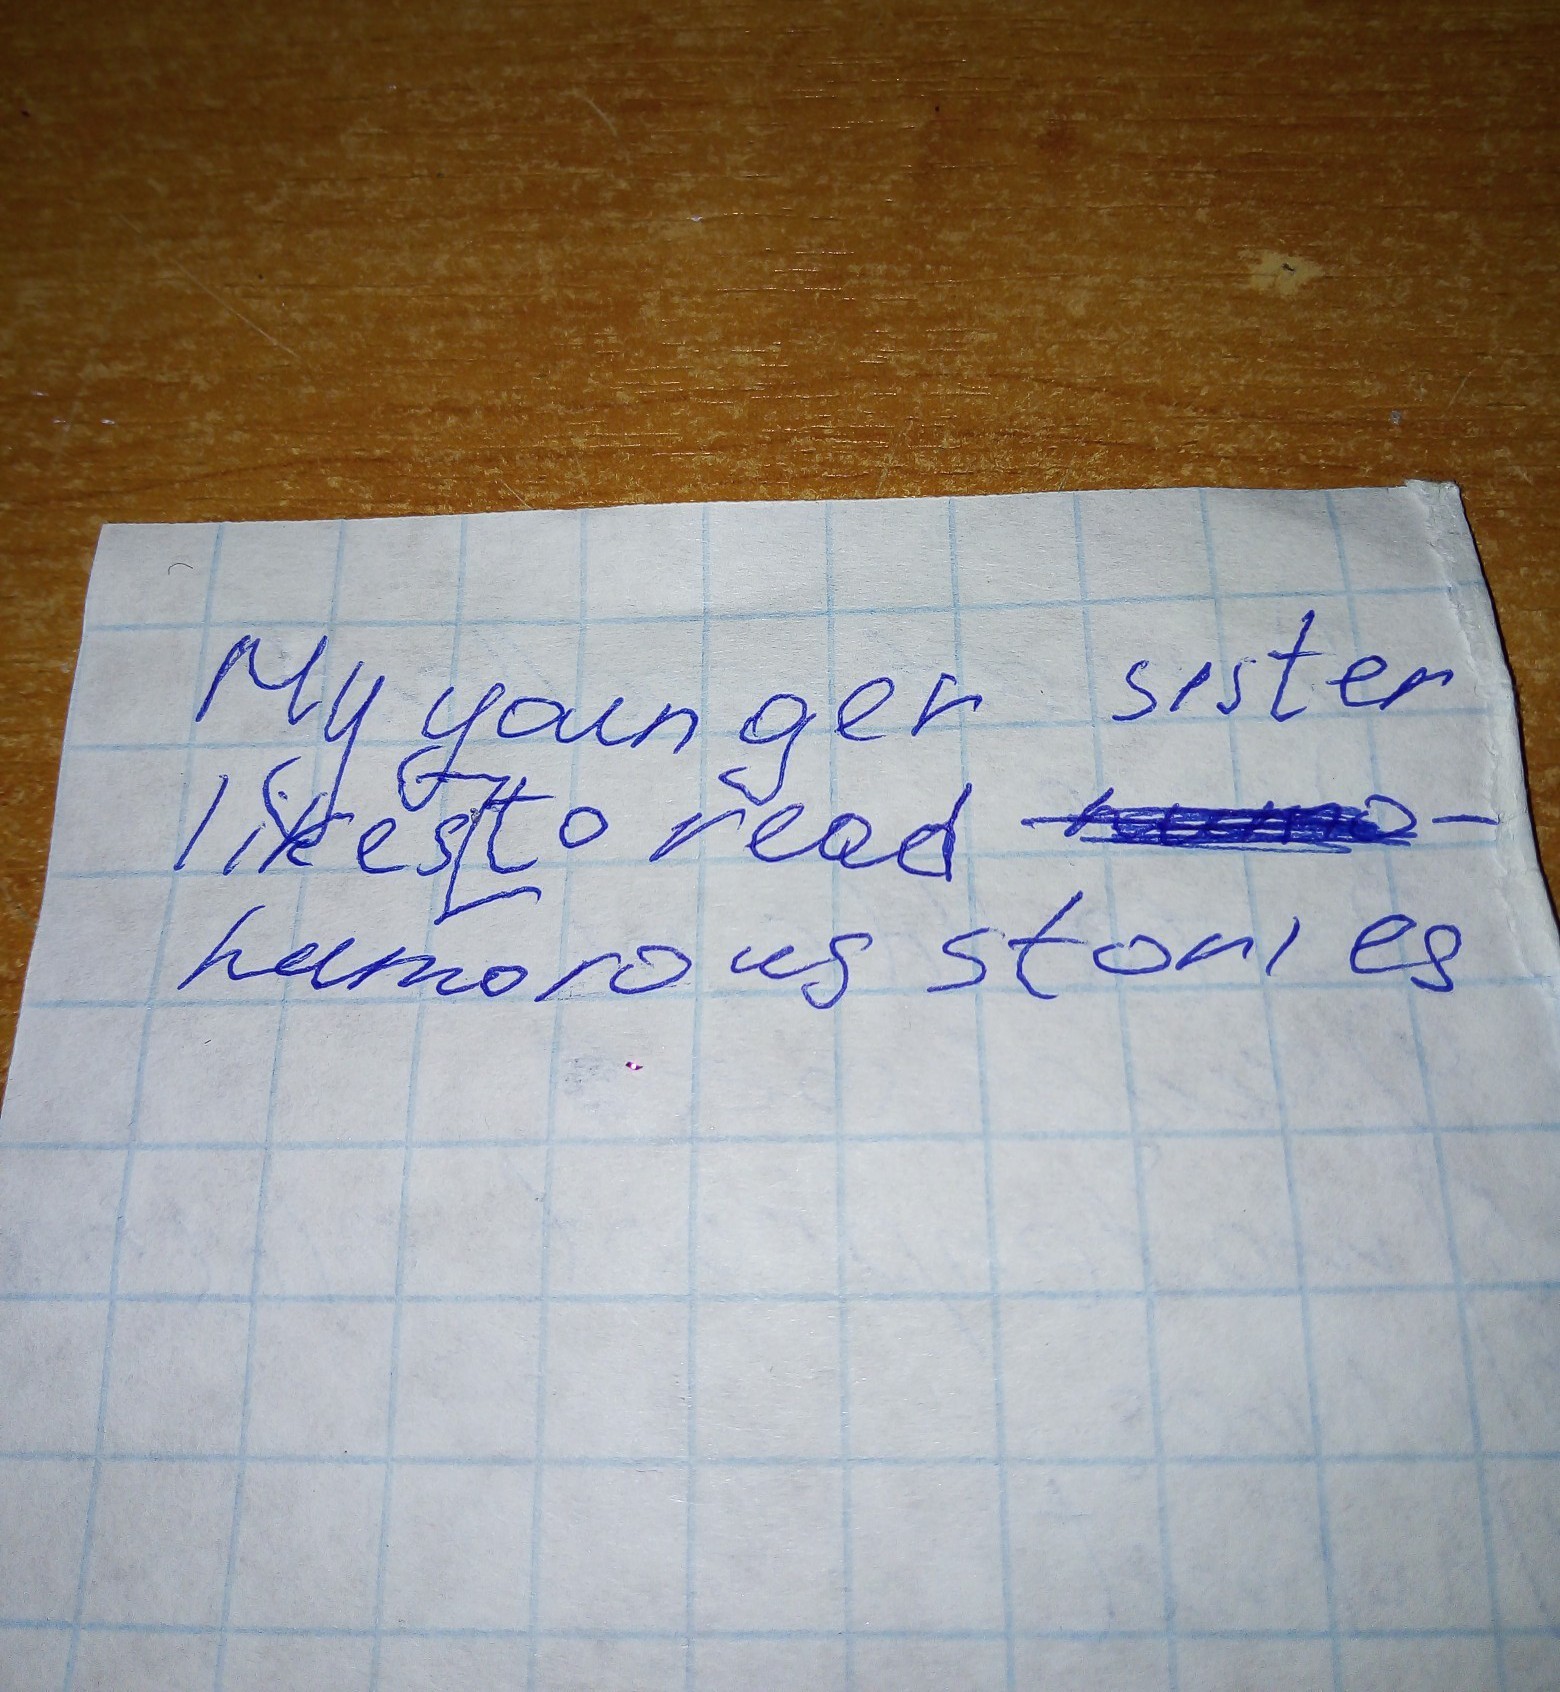 My younger sister
likes to read
humorous stories